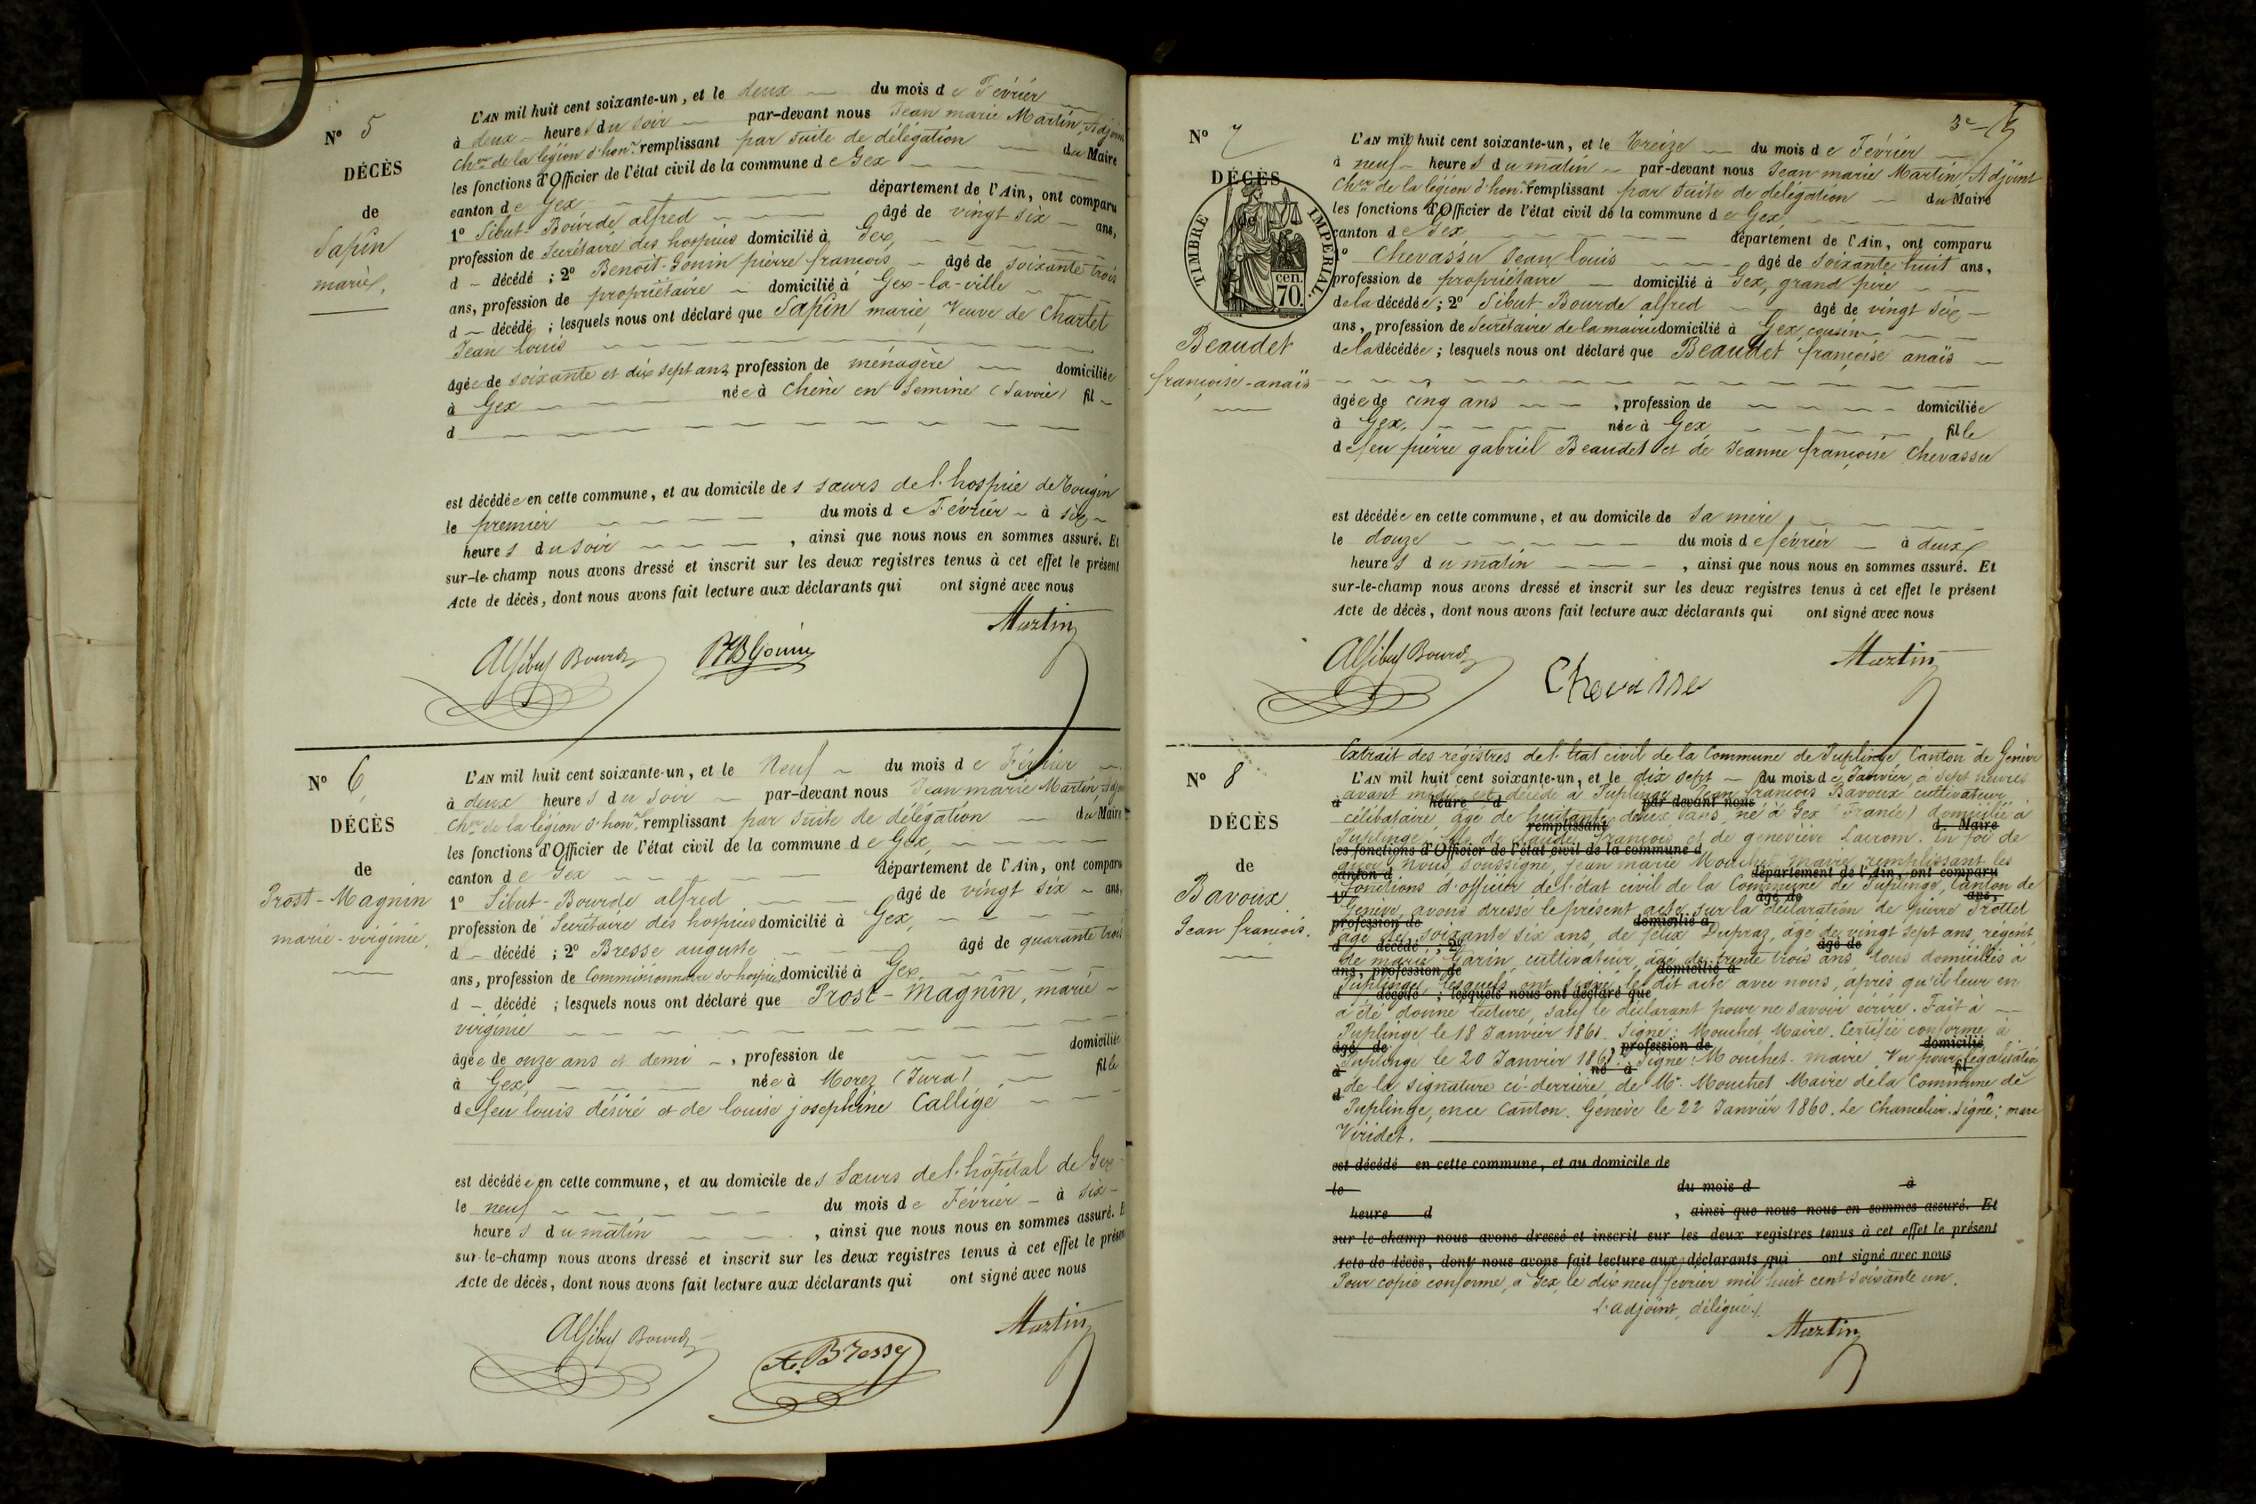 N° 5
DÉCÈS
de
Sapin
marie,
L'AN mil huit cent soixante-un, et le deux du mois de Février
à deux heures du soir par-devant nous Jean marie Martin, Adjoint
Cher de la légion d'honr remplissant par suite de délégation du Maire
les fonctions d'Officier de l'état civil de la commune de Gex
canton de Gex département de l'Ain, ont comparu
1° Sibut-Bourde alfred âgé de vingt six ans,
profession de Secrétaire des hospices domicilié à Gex,
d décédé ; 2° Benoît-Gonin pierre françois âgé de soixante trois
ans, profession de propriétaire domicilié à Gex-la-ville
d décédé ; lesquels nous ont déclaré que Sapin marie, Veuve de Chartel
Jean louis
âgée de soixante et dix sept ans profession de ménagère domiciliée
à Gex née à Chêne en Semine (Savoie) fil
d
est décédée en cette commune, et au domicile des sœurs de l'hospice de Tougin
le premier du mois de Février à six
heures du soir , ainsi que nous nous en sommes assuré. Et
sur-le-champ nous avons dressé et inscrit sur les deux registres tenus à cet effet le présent
Acte de décès, dont nous avons fait lecture aux déclarants qui ont signé avec nous
Martin
Alf Sibut Bourde Gonin
N° 6
DÉCÈS
de
Prost-Magnin
marie-virginie,
L'AN mil huit cent soixante-un, et le Neuf du mois de Février
à deux heures du soir par-devant nous Jean marie Martin, Adjoint
Cher de la légion d'honr remplissant par suite de délégation du Maire
les fonctions d'Officier de l'état civil de la commune de Gex,
canton de Gex département de l'Ain, ont comparu
1° Sibut-Bourde alfred âgé de vingt six ans,
profession de Secrétaire des hospices domicilié à Gex,
d décédé ; 2° Bresse auguste âgé de quarante trois
ans, profession de Commissionnaire des hospices domicilié à Gex
d décédé ; lesquels nous ont déclaré que Prost-Magnin, marie
virginie
âgée de onze ans et demi , profession de domiciliée
à Gex, née à Morez (Jura) fille
de feu louis désiré et de louise josephine Callige
est décédée en cette commune, et au domicile des Sœurs de l'hôpital de Gex
le neuf du mois de Février à six
heures du matin , ainsi que nous nous en sommes assuré. Et
sur-le-champ nous avons dressé et inscrit sur les deux registres tenus à cet effet le présent
Acte de décès, dont nous avons fait lecture aux déclarants qui ont signé avec nous
Alf Sibut Bourde Martin
Ate Bresse
3e
N° 7
DÉCÈS
de
TIMBRE IMPERIAL.
cen.
70.
Beaudet
françoise-anaïs
L'AN mil huit cent soixante-un, et le Treize du mois de Février
à neuf heures du matin par-devant nous Jean marie Martin Adjoint
Cher de la légion d'honr remplissant par suite de délégation du Maire
les fonctions d'Officier de l'état civil de la commune de Gex
canton de Gex département de l'Ain, ont comparu
1° Chevassu Jean louis âgé de soixante huit ans,
profession de propriétaire domicilié à Gex, grand père
de la décédée ; 2° Sibut-Bourde alfred âgé de vingt six
ans, profession de Secrétaire de la mairie domicilié à Gex, cousin
de la décédée ; lesquels nous ont déclaré que Beaudet françoise anaïs
âgée de cinq ans , profession de domiciliée
à Gex, née à Gex fille
de feu pierre gabriel Beaudet et de Jeanne françoise Chevassu
est décédée en cette commune, et au domicile de sa mère
le douze du mois de février à deux
heures du matin , ainsi que nous nous en sommes assuré. Et
sur-le-champ nous avons dressé et inscrit sur les deux registres tenus à cet effet le présent
Acte de décès, dont nous avons fait lecture aux déclarants qui ont signé avec nous
Alf Sibut Bourde Martin
Chevassu
N° 8
DÉCÈS
de
Bavoux
Jean françois.
Extrait des régistres de l'état civil de la Commune de Puplinge, Canton de Genève
L'AN mil huit cent soixante-un, et le dix sept du mois de Janvier à sept heures
avant midi est décédé à Puplinge Jean françois Bavoux cultivateur
à heure d par devant nous
célibataire, âgé de huitante deux ans, né à Gex (France) domicilié à
remplissant d Maire
Puplinge, fils de claude françois et de geneviève Lacrom. En foi de
les fonctions d'Officier de l'état civil de la commune d
quoi Nous soussigné, jean marie Mouchet, maire remplissant les
canton d département de l'Ain, ont comparu
fonctions d'officier de l'état civil de la Commune de Puplinge, Canton de
1° âgé de ans,
Genève, avons dressé le présent acte sur la déclaration de pierre Trottet
profession de domicilié à
âgé de soixante six ans, de félix Dupraz, âgé de vingt sept ans, régent
d décédé ; 2° âgé de
de marie Garin, cultivateur âgé de trente trois ans tous domiciliés à
ans, profession de domicilié à
Puplinge, lesquels ont signé le dit acte avec nous, après qu'il leur en
d décédé ; lesquels nous ont déclaré que
a été donné lecture, sauf le déclarant pour ne savoir écrire. Fait à
Puplinge le 18 Janvier 1861. Signé : Mouchet, Maire. Certifié conforme à
âgé de profession de domicilié
Puplinge le 20 Janvier 1861. Signé : Mouchet. maire Vu pour légalisation
à né à fil
de la signature ci-derrière de Mr. Mouchet Maire de la Commune de
d
Puplinge, en ce Canton. Génève le 22 Janvier 1860. Le Chancelier. Signé : marc
Viridet.
est décédé en cette commune, et au domicile de
le du mois d à
heure d , ainsi que nous nous en sommes assuré. Et
sur-le-champ nous avons dressé et inscrit sur les deux registres tenus à cet effet le présent
Acte de décès, dont nous avons fait lecture aux déclarants qui ont signé avec nous
Pour copie conforme, à Gex, le dix neuf février mil huit cent soixante un.
L'adjoint, délégué,
Martin